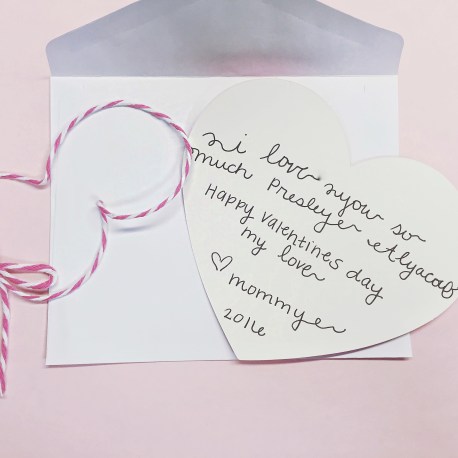 i love you so
much Presley
Happy valentines day
my love
♡ mommy
2016